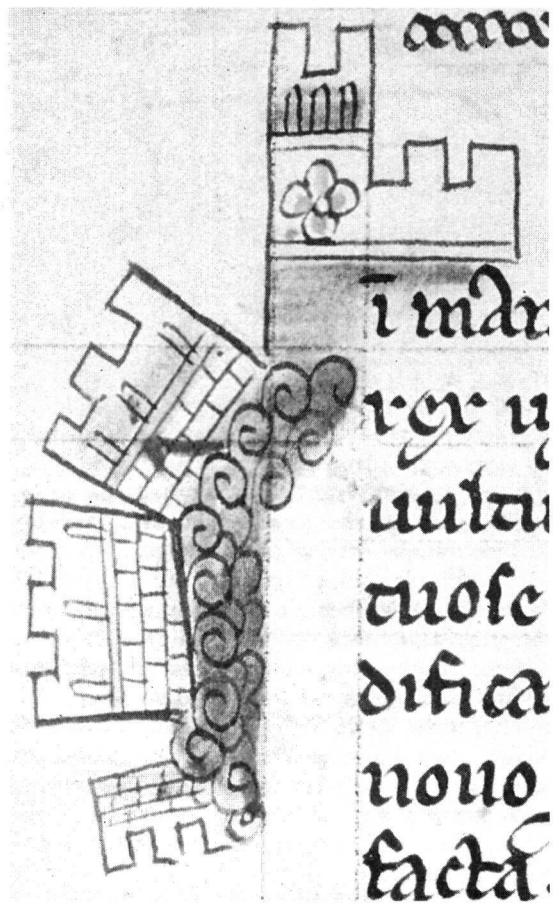 ī mar
rex u
uultu
tuose
difica
nouo
facta.